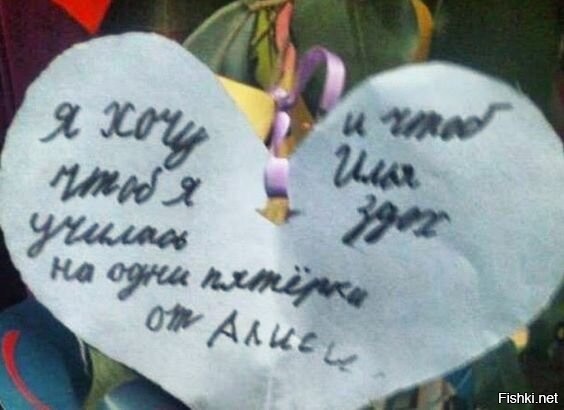 я хочу
чтоб я
училась
на одни пятёрки
от Алисы.
и чтоб
Илья
здох
Fishki.net